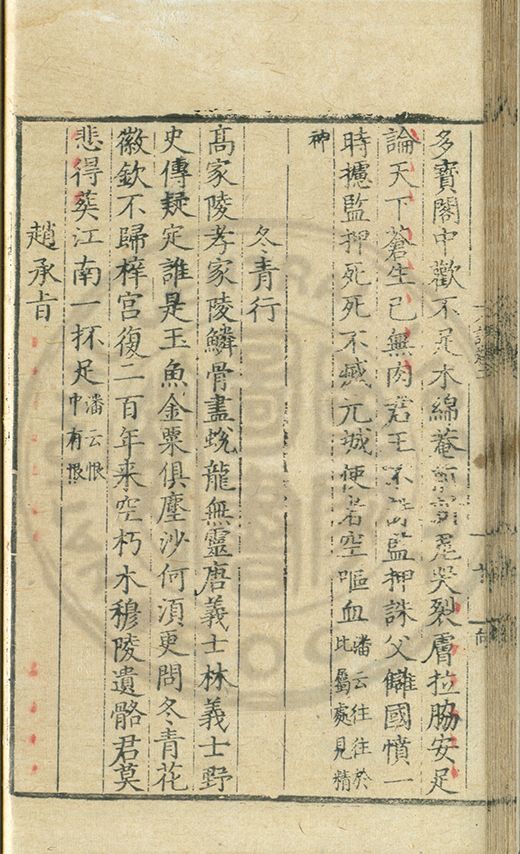 多寶閣中歡不足木綿菴哭裂膚拉脇安足
論天下蒼生已無肉君王不監押誅父讎國憤一
時攄監押死死不憾元城使者空嘔血潘云往往於
比屬處見精
神
冬青行
高家陵孝家陵鱗骨盡蛻龍無靈唐義士林義士野
史傳疑定誰是玉魚金粟俱塵沙何須更問冬青花
徽欽不歸梓宮復二百年来空朽木穆陵遺骼君莫
悲得葬江南一抔足潘云恨
中有恨
趙承旨